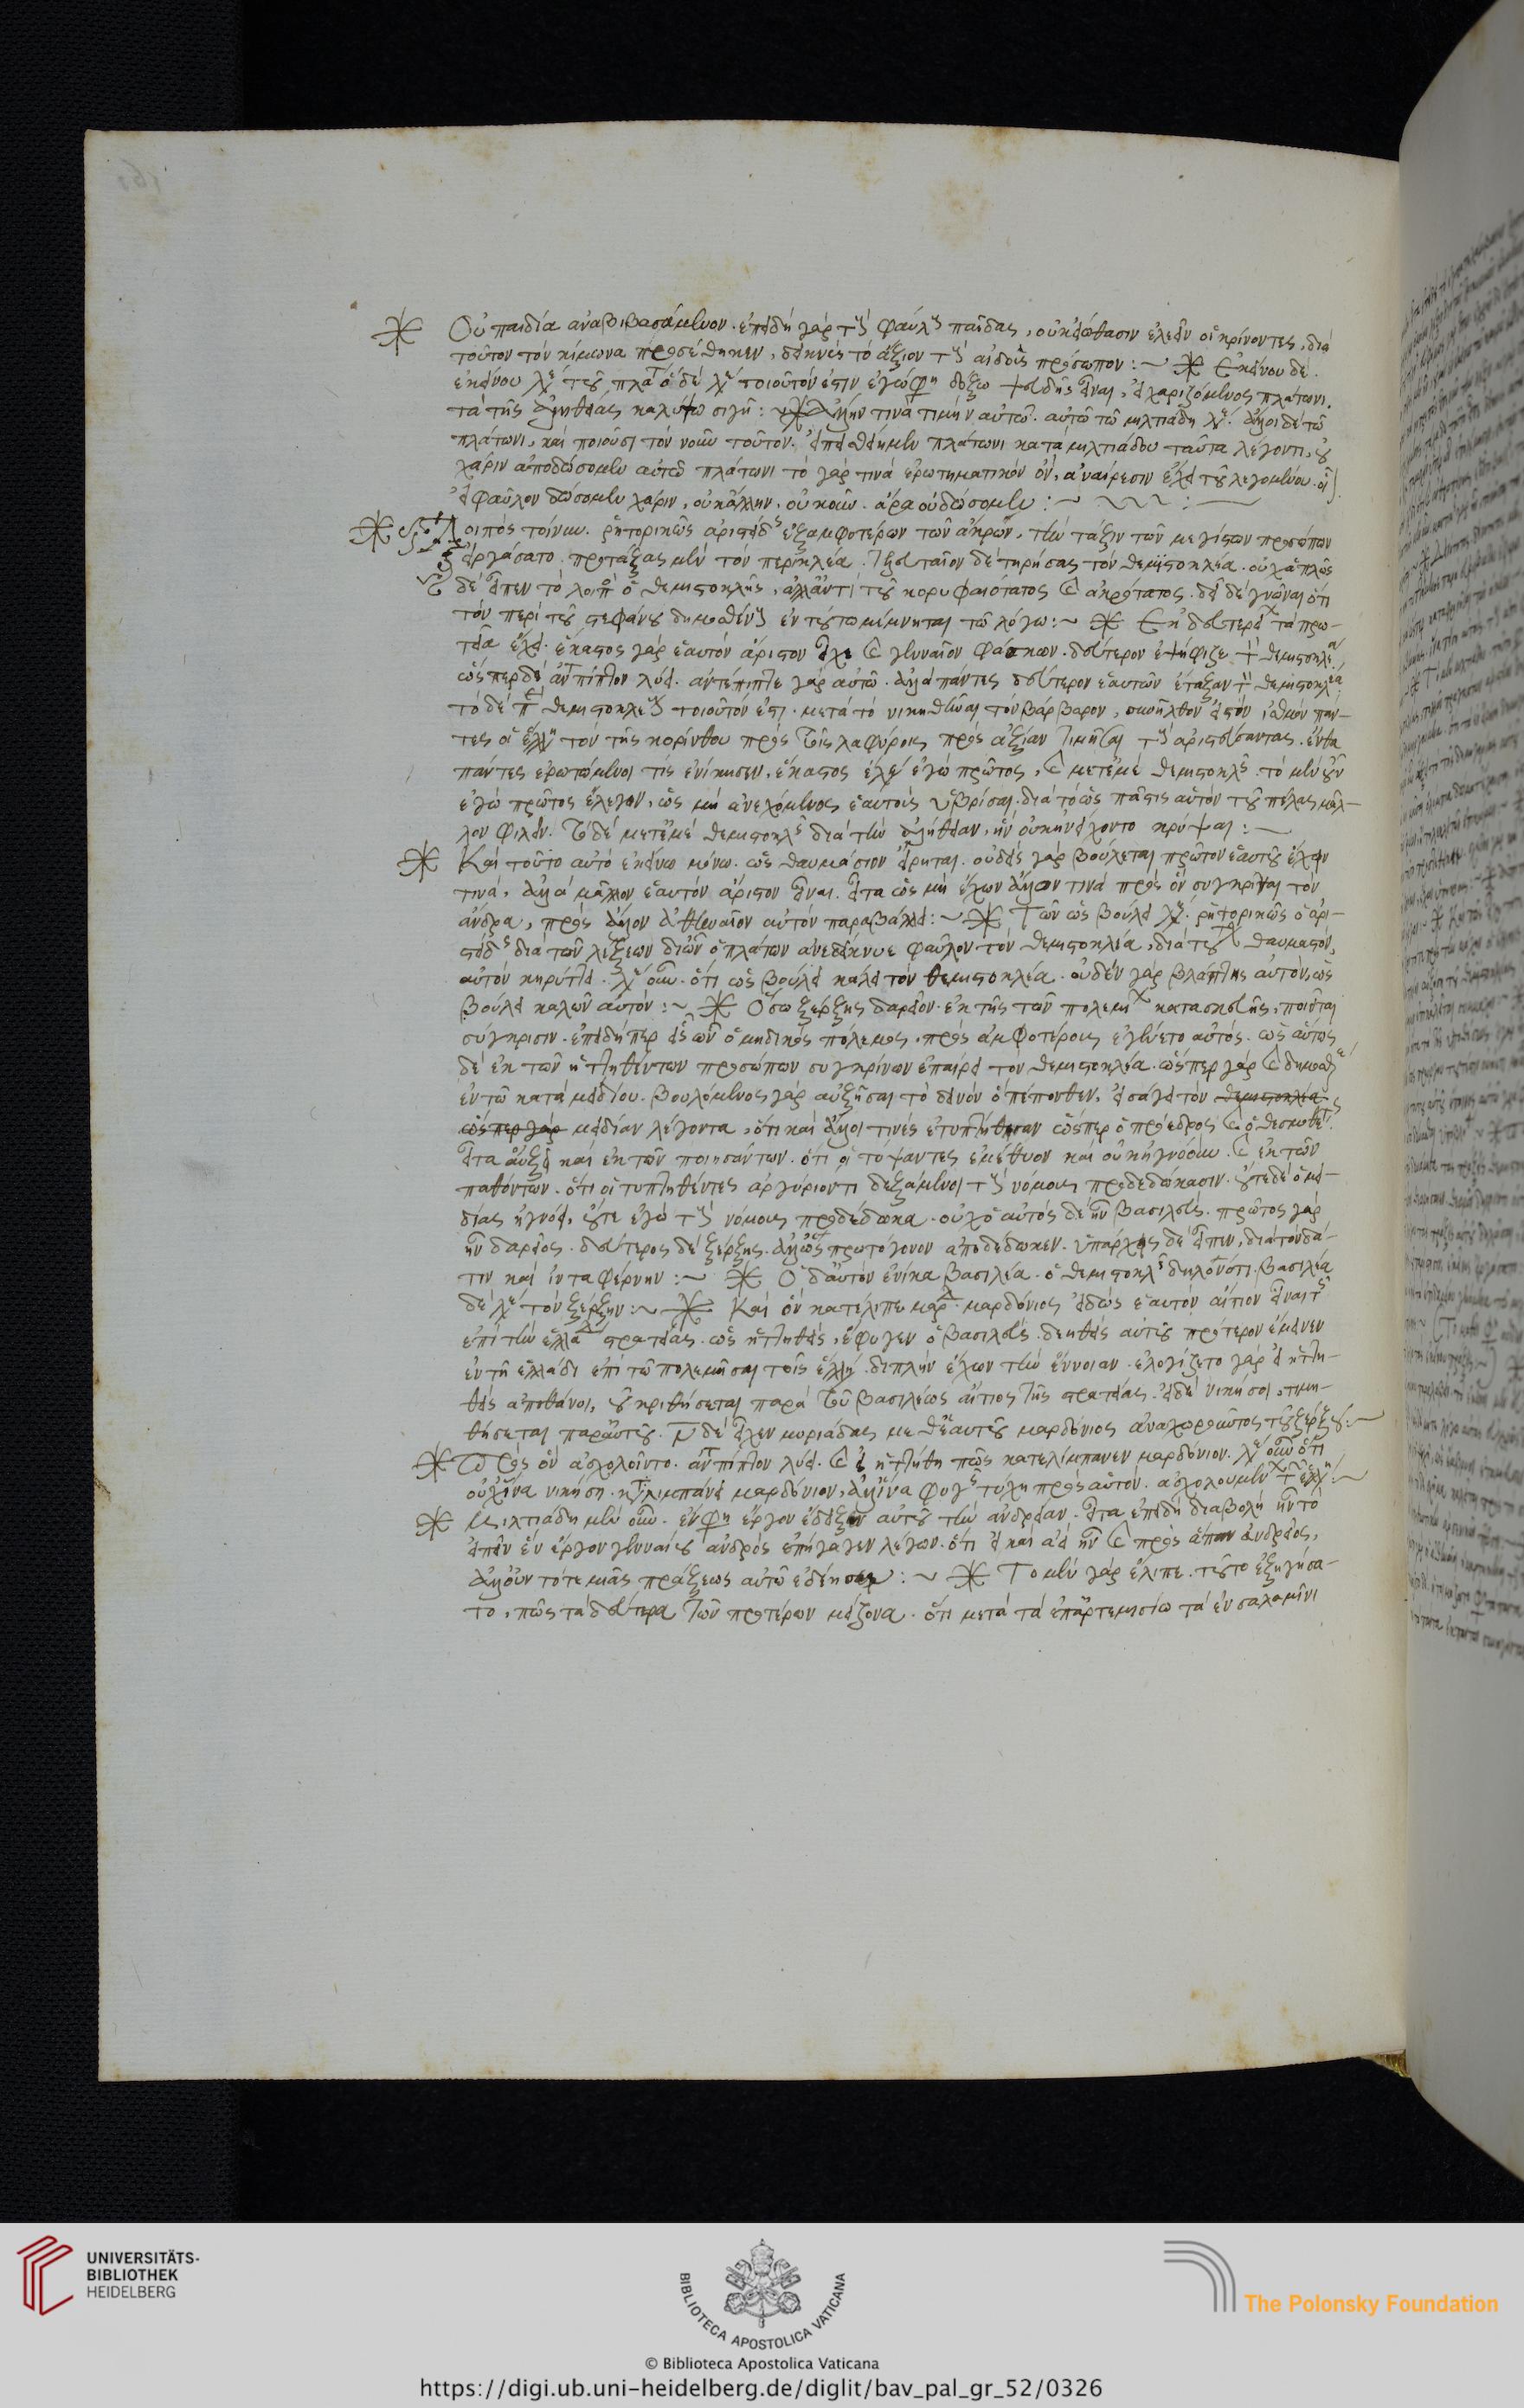 Οὐ παιδία ἀναβιβασάμενον. ἐπειδὴ γὰρ τοὺς φαύλους παῖδας, οὐκ εἰώθασιν ἐλεεῖν οἱ κρίνοντες, διὰ
τοῦτον τὸν κίμωνα προσέθηκεν, δεικνὺς τὸ ἄξιον τῆς αἰδοῦς πρόσωπον :~ Ἐκείνου δὲ.
ἐκείνου λέγει τοῦ πλάτ ὃ δὲ λέγει τοιοῦτόν ἐστιν ἐγώ φη δόξω ψευδὴς εἶναι, εἰ χαριζόμενος πλάτωνι.
τὰ τῆς ἀληθείας καλύψω σιγῇ : τινὰ τιμὴν αὐτῷ. αὐτῷ τῷ μιλτιάδῃ λέγει. ἄλλοι δὲ τῷ
πλάτωνι, καὶ ποιοῦσι τὸν νοῦν τοῦτον. πλάτωνι κατὰ μιλτιάδου ταῦτα λέγοντι,
χάριν ἀποδώσομεν αὐτῷ πλάτωνι τὸ γὰρ τινὰ ἐρωτηματικὸν ὂν, ἀναίρεσιν ἔχει τοῦ λεγομένου.
εἰ φαῦλον δώσομεν χάριν, οὐκ ἄλλην. οὐκοῦν. ἄρα οὐ δώσομεν :~
Λοιπὸς τοίνυν. ῥητορικῶς ἀριστείδης ἐξ ἀμφοτέρων τῶν ἄκρων, τὴν τάξιν τῶν μεγίστων προσώπων
εἰργάσατο. προτάξας μὲν τὸν περικλέα. τελευταῖον δὲ τηρήσας τὸν θεμιστοκλέα. οὐχ ἁπλῶς
δὲ εἶπεν τὸ λοιπ ὁ θεμιστοκλῆς, ἀλλ' ἀντὶ τοῦ κορυφαιότατος καὶ ἀκρότατος. δεῖ δὲ γνῶναι ὅτι
τὸν περὶ τοῦ στεφάνου δημοσθένους ἐν τούτῳ μέμνηται τῷ λόγῳ :~ Ἐκ δευτερεί τὰ πρω-
τεῖα ἔχει. ἕκαστος γὰρ ἑαυτὸν ἄριστον εἶχε καὶ γενναῖον φάσκων. δεύτερον ἐψήφιζε τ θεμιστοκλέα
ὥσπερ δὲ ἀντιπῖπτον λύει. ἀντέπιπτε γὰρ αὐτῷ. ἀλλὰ πάντες δεύτερον ἑαυτῶν ἔταξαν τ θεμιστοκλέα
τὸ δὲ π θεμιστοκλέους τοιοῦτόν ἐστι. μετὰ τὸ νικηθῆναι τὸν βάρβαρον, συνῆλθον εἰς τὸν ἰσθμὸν παν-
τες οἱ ἕλλη τὸν τῆς κορίνθου πρὸς τοῖς λαφύροις πρὸς ἀξίαν τιμῆσαι τοὺς ἀριστεύσαντας. ἔνθα
πάντες ἐρωτώμενοι τίς ἐνίκησεν, ἕκαστος ἔλεγεν ἐγὼ πρῶτος, καὶ μετ' ἐμὲ θεμιστοκλῆς. τὸ μὲν οὖν
ἐγὼ πρῶτος ἔλεγον, ὡς μὴ ἀνεχόμενος ἑαυτοὺς ὑβρίσαι. διὰ τὸ ὡς πᾶς τις αὑτὸν τοῦ πέλας μᾶλ-
λον φιλεῖν. τὸ δὲ μετ' ἐμὲ θεμιστοκλῆς διὰ τὴν ἀλήθειαν, ἣν οὐκ ἠνείχοντο κρύψαι :~
Καὶ τοῦτο αὐτὸ ἐκείνῳ μόνῳ. ὡς θαυμάσιον εἴρηται. οὐδεὶς γὰρ βούλεται πρῶτον ἑαυτοῦ ἔχειν
τινά, ἀλλὰ μᾶλλον ἑαυτὸν ἄριστον εἶναι. εἶτα ὡς μὴ ἔχων ἄλλον τινὰ πρὸς ὃν συγκρῖναι τὸν
ἄνδρα, πρὸς ἄλλον ἀθηναῖον αὐτὸν παραβάλλει :~ Τῶν ὡς βούλει λέγει. ῥητορικῶς ὁ ἀρι-
στείδης διὰ τῶν λέξεων δι' ὧν ὁ πλάτων ἀνεδείκνυε φαῦλον τὸν θεμιστοκλέα, διὰ τούτων θαυμαστόν,
αὐτὸν κηρύττει. λέγει οὖν. ὅτι ὡς βούλει κάλει τὸν θεμιστοκλέα. οὐδὲν γὰρ βλάπτεις αὐτὸν, ὡς
βούλει καλῶν αὐτόν :~ Ὅσῳ ξέρξης δαρεῖον. ἐκ τῆς τῶν πολεμι κατασκευῆς, ποιεῖται
σύγκρισιν. ἐπειδήπερ εἷς ὢν ὁ μηδικὸς πόλεμος, πρὸς ἀμφοτέρους ἐγένετο αὐτός. ὡς αὕτως
δὲ ἐκ τῶν ἡττηθέντων προσώπων συγκρίνων ἐπαίρει τὸν θεμιστοκλέα. ὥσπερ γὰρ καὶ δημοσθ
ἐν τῷ κατὰ μειδίου. βουλόμενος γὰρ αὐξῆσαι τὸ δεινὸν ὃ πέπονθεν, εἰσάγει τὸν θεμιστοκλέα
ὥσπερ γὰρ μειδίαν λέγοντα, ὅτι καὶ ἄλλοι τινὲς ἐτυπτήθησαν ὥσπερ ὁ πρόεδρος καὶ ὁ θεσμοθέτης
εἶτα αὔξει καὶ ἐκ τῶν ποιησάντων. ὅτι οἱ τύψαντες ἐμέθυον καὶ οὐκ ἠγνόουν. καὶ ἐκ τῶν
παθόντων. ὅτι οἱ τυπτηθέντες ἀργύριόν τι δεξάμενοι τοὺς νόμους προδεδώκασιν. οὔτε δὲ ὁ μει-
δίας ἠγνόει, οὔτε ἐγὼ τοὺς νόμους προδέδωκα. οὐχ ὁ αὐτὸς δὲ ἦν βασιλεύς. πρῶτος γὰρ
ἦν δαρεῖος. δεύτερος δὲ ξέρξης. πρωτόγονον ἀποδέδωκεν. ὑπάρχους δὲ εἶπεν, διὰ τὸν δά-
τιν καὶ ἰνταφέρνην :~ Ὁ δ' αὐτὸν ἐνίκα βασιλέα. ὁ θεμιστοκλῆς δηλονότι. βασιλέα
δὲ λέγει τὸν ξέρξην :~ Καὶ ὃν κατέλιπε μαρδ. μαρδόνιος εἰδὼς ἑαυτὸν αἴτιον εἶναι τῆς
ἐπὶ τὴν ἑλλάδ στρατείας. ὡς ἡττηθεὶς, ἔφυγεν ὁ βασιλεύς. δεηθεὶς αὐτοῦ πρότερον ἔμεινεν
ἐν τῇ ἑλλάδι ἐπὶ τῷ πολεμῆσαι τοῖς ἕλλη. διπλῆν ἔχων τὴν ἔννοιαν. ἐλογίζετο γὰρ εἰ ἡττη-
θεὶς ἀποθάνοι, οὐ κριθήσεται παρὰ τοῦ βασιλέως αἴτιος τῆς στρατείας. εἰ δὲ νικήσοι, τιμη-
θήσεται παρ' αὐτοῦ. δὲ εἶχεν μυριάδας μεθ' ἑαυτοῦ μαρδόνιος ἀναχωροῦντος τοῦ ξέρξου :~
πρὸς ὃν ἀσχολοῖντο. ἀντιπῖπτον λύει. καὶ εἰ ἡττήθη πῶς κατελίμπανεν μαρδόνιον. λέγει οὖν ὅτι
οὐχ ἵνα νικήσῃ. κατελίμπανε μαρδόνιον, ἀλλ' ἵνα φυγῆς τύχῃ πρὸς αὐτὸν. ἀσχολουμεν τ ἑλλή :~
Μιλτιάδῃ μὲν οὖν. ἕν φη ἔργον ἔδειξεν αὐτοῦ τὴν ἀνδρείαν. εἶτα ἐπειδὴ διαβολὴ ἦν τὸ
εἰπεῖν ἓν ἔργον γενναίου ἀνδρὸς ἐπήγαγεν λέγων. ὅτι εἰ καὶ ἀεὶ ἦν καὶ πρὸς ἅπαν ἀνδρεῖος,
ἀλλ' οὖν τότε μιᾶς πράξεως αὐτῷ ἐδέησεν :~ Τὸ μὲν γὰρ ἔλιπε. τοῦτο ἐξηγήσα-
το, πῶς τὰ δεύτερα τῶν προτέρων μείζονα. ὅτι μετὰ τὰ ἐπ' ἀρτεμισίῳ τὰ ἐν σαλαμῖνι
UNIVERSITÄTS-
BIBLIOTHEK
HEIDELBERG
BIBLIOTECA APOSTOLICA VATICANA
The Polonsky Foundation
© Biblioteca Apostolica Vaticana
https://digi.ub.uni-heidelberg.de/diglit/bav_pal_gr_52/0326